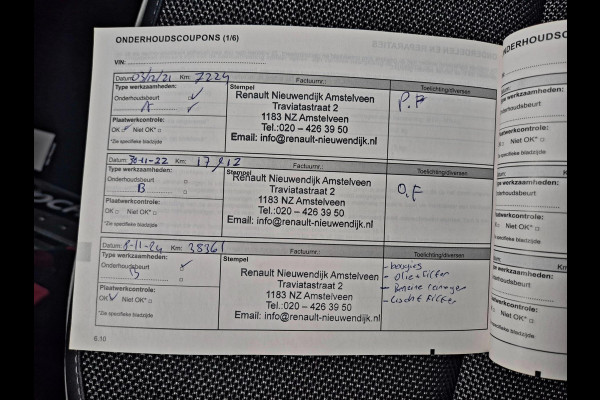 ONDERHOUDSCOUPONS (1/6)
VIN:
Datum: 03/12/21 Km: 7224 Factuurnr.: Toelichting/diversen
Type werkzaamheden:
Onderhoudsbeurt ✓
A ✓
Plaatwerkcontrole:
OK ✓ Niet OK* □
*Zie specifieke bladzijde
Stempel
Renault Nieuwendijk Amstelveen
Traviatastraat 2
1183 NZ Amstelveen
Tel.:020 – 426 39 50
Email: info@renault-nieuwendijk.nl
P.F
Datum: 30-11-22 Km: Factuurnr.: Toelichting/diversen
Type werkzaamheden:
Onderhoudsbeurt □
B
Plaatwerkcontrole:
OK □ Niet OK* □
*Zie specifieke bladzijde
Stempel
Renault Nieuwendijk Amstelveen
Traviatastraat 2
1183 NZ Amstelveen
Tel.:020 – 426 39 50
Email: info@renault-nieuwendijk.nl
O.F
Datum: 8-11-24 Km: 38361 Factuurnr.: Toelichting/diversen
Type werkzaamheden:
Onderhoudsbeurt ✓
Plaatwerkcontrole:
OK ✓ Niet OK* □
*Zie specifieke bladzijde
Stempel
Renault Nieuwendijk Amstelveen
Traviatastraat 2
1183 NZ Amstelveen
Tel.:020 – 426 39 50
Email: info@renault-nieuwendijk.nl
- bougies
- olie + filter
- Benzine reiniger
- Lucht filter
6.10
ONDERHOUDSC
VIN:
Datum:
Type werkzaamheden:
Onderhoudsbeurt
Plaatwerkcontrole: